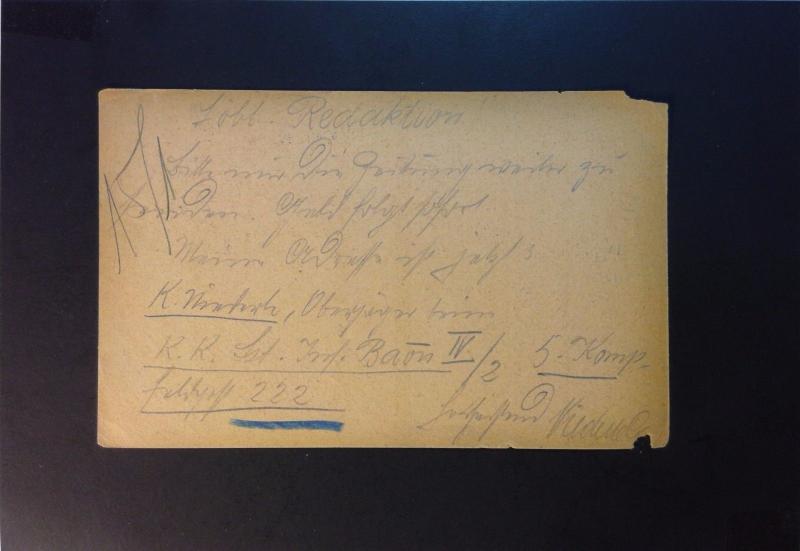 Löbl. Redaktion
Bitte mir die Zeitung weiter zu
senden. Geld folgt sofort
Meine Adresse ist jetzt:
K. Niederle, Oberjäger beim
K. K. Lst. Inf. Baon IV/2 5. Komp.
Feldpost 222
Niederle